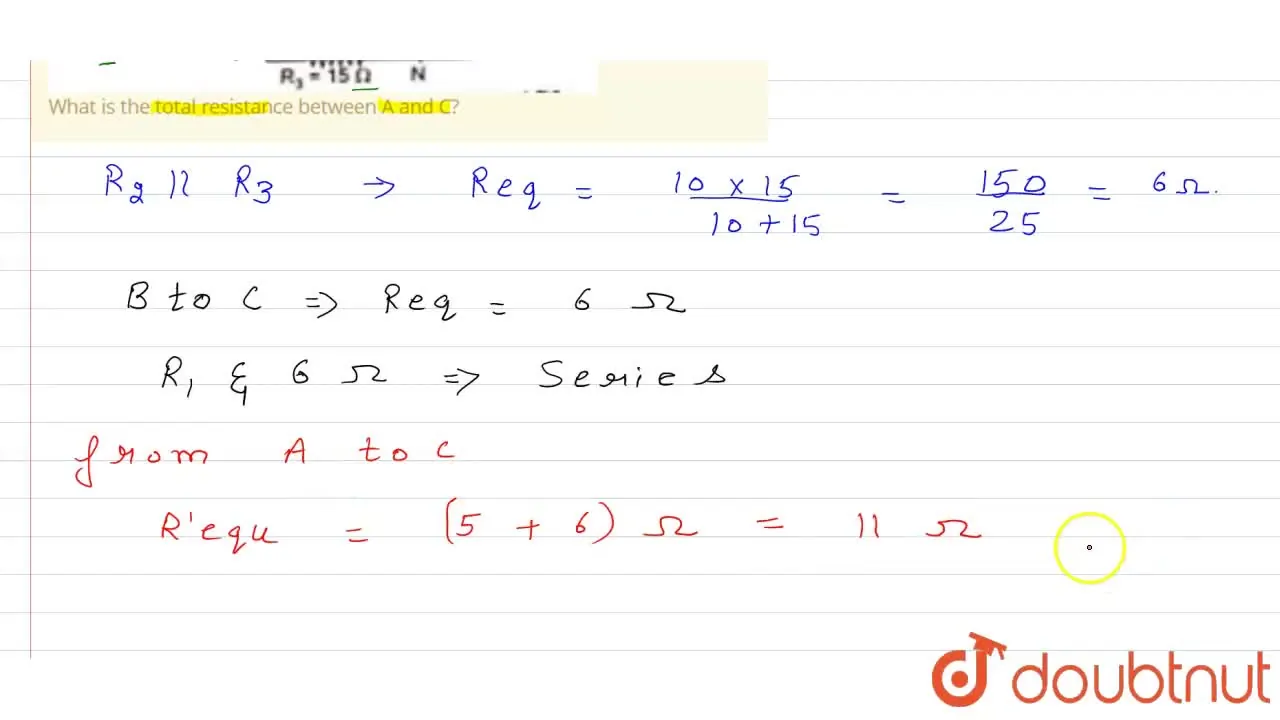 R₃ = 15 Ω N
What is the total resistance between A and C?
R₂ || R₃ → Req = 10 × 15 / 10 + 15 = 150 / 25 = 6 Ω.
B to C ⇒ Req = 6 Ω
R₁ & 6 Ω ⇒ Series
from A to C
R'equ = (5 + 6) Ω = 11 Ω
doubtnut